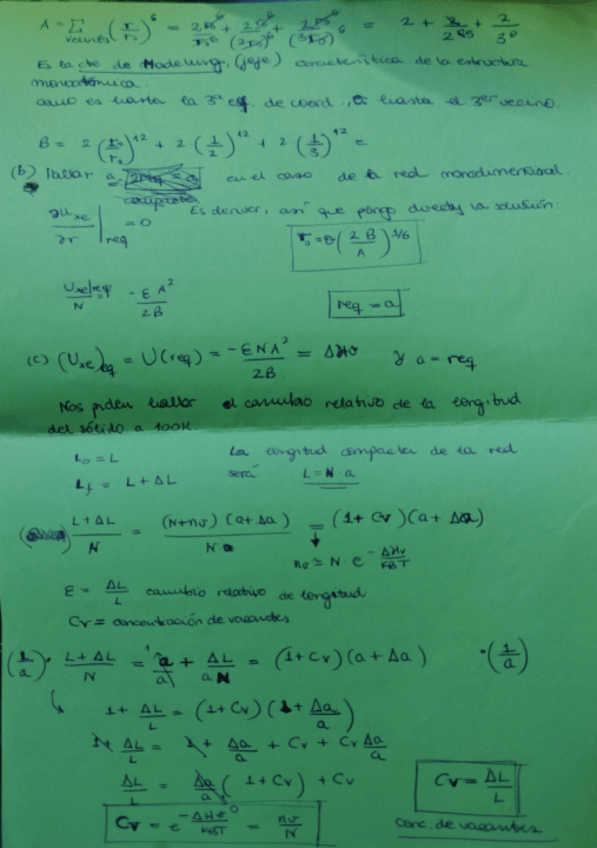 A = Σ_vecinos (r/r₀)^6 = 2r₀^6/r₀^6 + 2r₀^6/(2r₀)^6 + 2r₀^6/(3r₀)^6 = 2 + 2/2^6 + 2/3^6
Es la cte de Madelung, (jeje) característica de la estructura
monoatómica.
como es hasta la 3ª esf. de coord., hasta el 3er vecino.
B = 2 (r₀/r₀)^12 + 2 (1/2)^12 + 2 (1/3)^12 =
(b) Hallar a en el caso de la red monodimensional.
∂U_xe/∂r |_req = 0 Es derivar, así que pongo directy la solución:
r₀ = σ (2B/A)^1/6
U_xe|req/N = - ε A²/2B req = a
(c) (U_xe)_eq = U(req) = - ε N A²/2B = ΔHv y a = req
Nos piden hallar el cambio relativo de la longitud
del sólido a 100K.
L₀ = L La longitud completa de la red
L_f = L + ΔL será L = N · a
(L+ΔL)/N = (N+nv)(a+Δa)/N = (1+Cv)(a+Δa)
nv ≃ N e^-ΔHv/KBT
ε = ΔL/L cambio relativo de longitud
Cv = concentración de vacantes
(1/a) · (L+ΔL)/N = a/a + ΔL/aN = (1+Cv)(a+Δa) · (1/a)
1 + ΔL/L = (1+Cv)(1+Δa/a)
1 + ΔL/L = 1 + Δa/a + Cv + Cv Δa/a
ΔL/L = Δa/a (1+Cv) + Cv Cv = ΔL/L
Cv = e^-ΔHv/KBT = nv/N conc. de vacantes